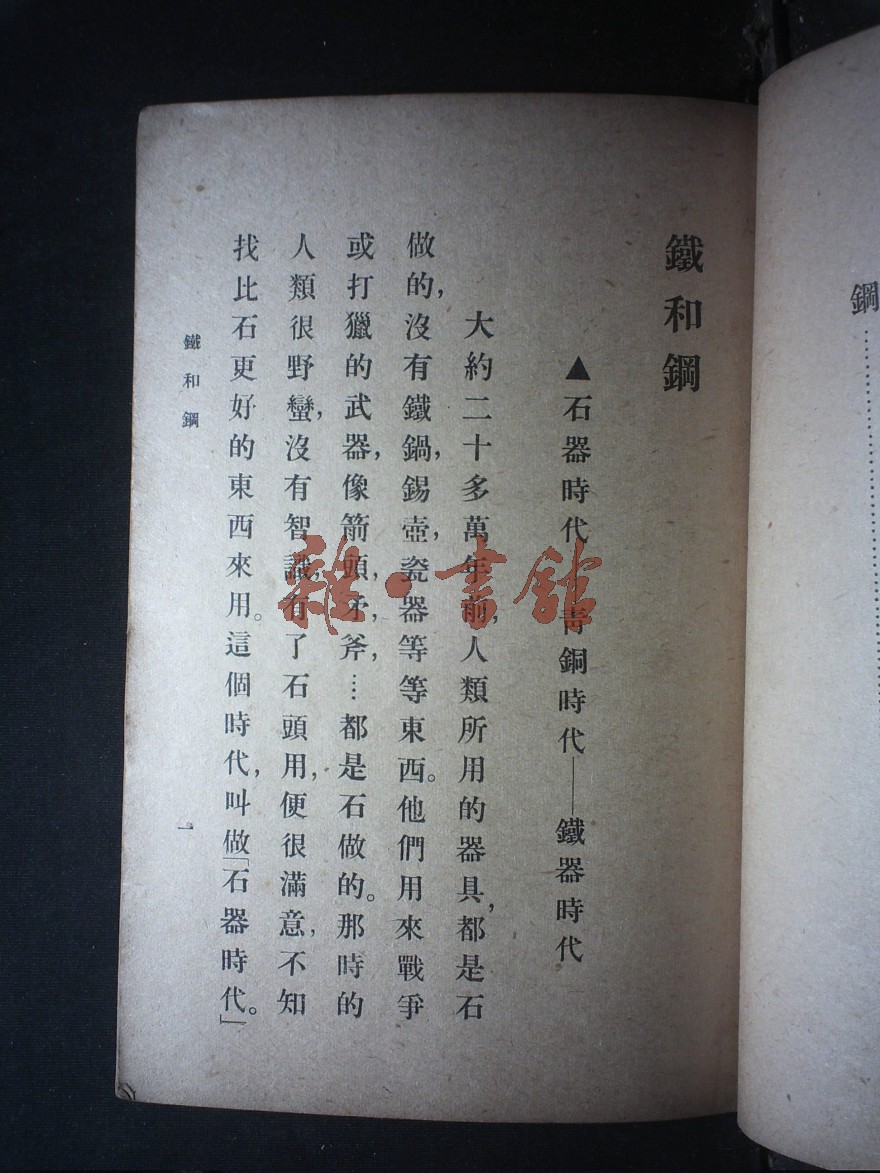 鋼……………
鐵和鋼
▲石器時代——青銅時代——鐵器時代
大約二十多萬年前，人類所用的器具，都是石
做的，沒有鐵鍋，錫壺，瓷器等等東西。他們用來戰爭
或打獵的武器，像箭頭，矛，斧，…都是石做的。那時的
人類很野蠻，沒有智識，有了石頭用，便很滿意，不知
找比石更好的東西來用。這個時代，叫做「石器時代。」
鐵和鋼
一
雜·書館